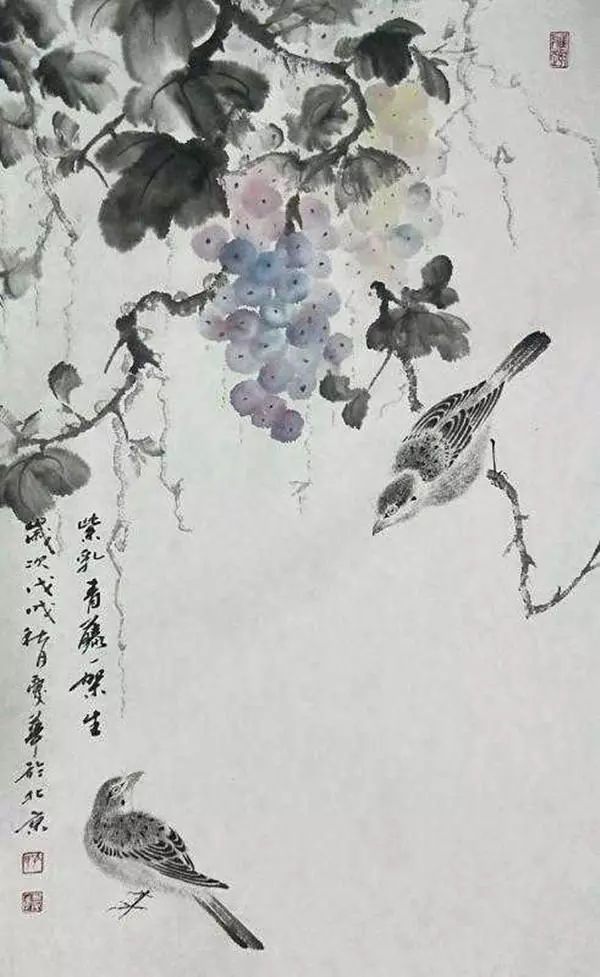 紫乳青藤一架生
歲次戊戌秋月愛華於北京